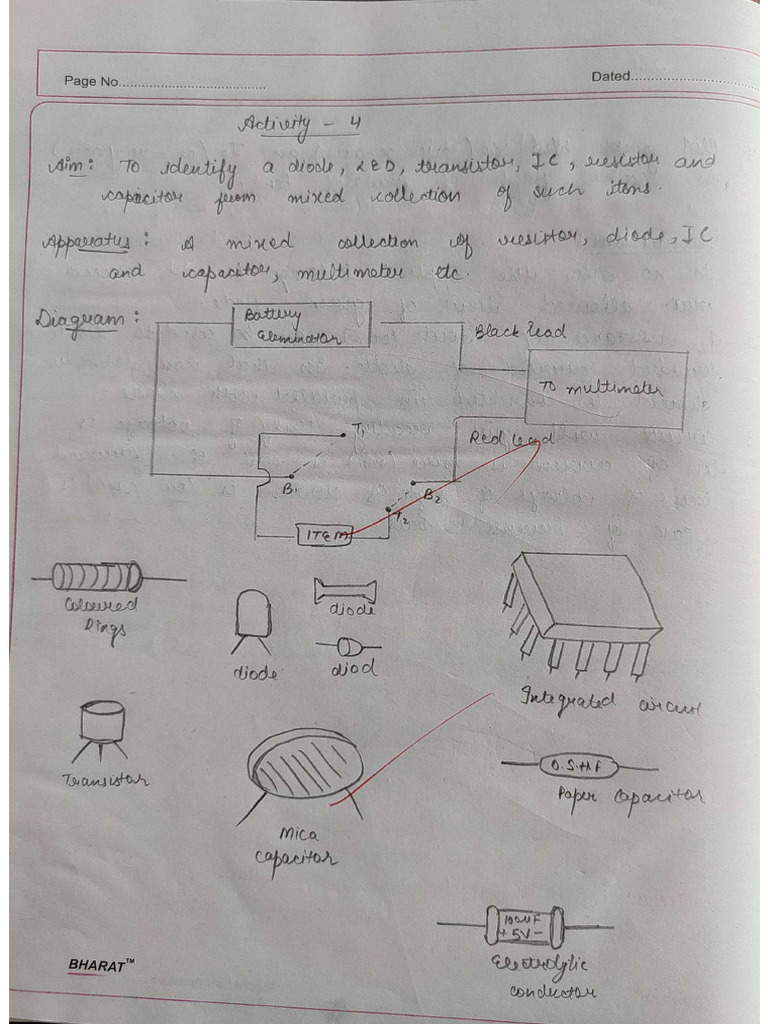 Page No.
Dated
Activity - 4
Aim: To identify a diode, LED, transistor, IC, resistor and
capacitor from mixed collection of such items.
Apparatus: A mixed collection of resistor, diode, IC
and capacitor, multimeter etc.
Diagram:
Battery
Eleminator
Black lead
To multimeter
T1
Red lead
B1
B2
T2
ITEM
Coloured
Rings
diode
diode
diod
Integrated circuit
Transistor
Mica
capacitor
Paper Capacitor
100µF
+ 5V -
Electrolytic
conductor
BHARAT™